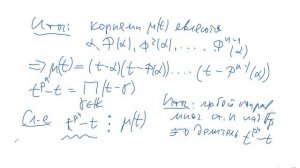 Итог: корнями μ(t) являются
α, Φ(α), Φ²(α), ..., Φⁿ⁻¹(α)
⇒ μ(t) = (t-α)(t-Φ(α)) ... (t - Φⁿ⁻¹(α))
t^{pⁿ} - t = ∏ (t-γ)
γ∈K
Сл-е t^{pⁿ} - t ⋮ μ(t)
Итог: любой неприв
мног. ст. n над
это делитель t^{pⁿ} - t